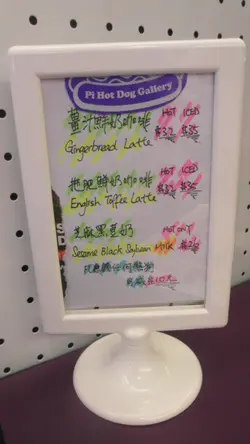 Pi Hot Dog Gallery
薑汁鮮奶咖啡 HOT ICED
Gingerbread Latte $32 $35
拖肥鮮奶咖啡 HOT ICED
English Toffee Latte $32 $35
芝麻黑豆奶 HOT ONLY
Sesame Black Soybean Milk